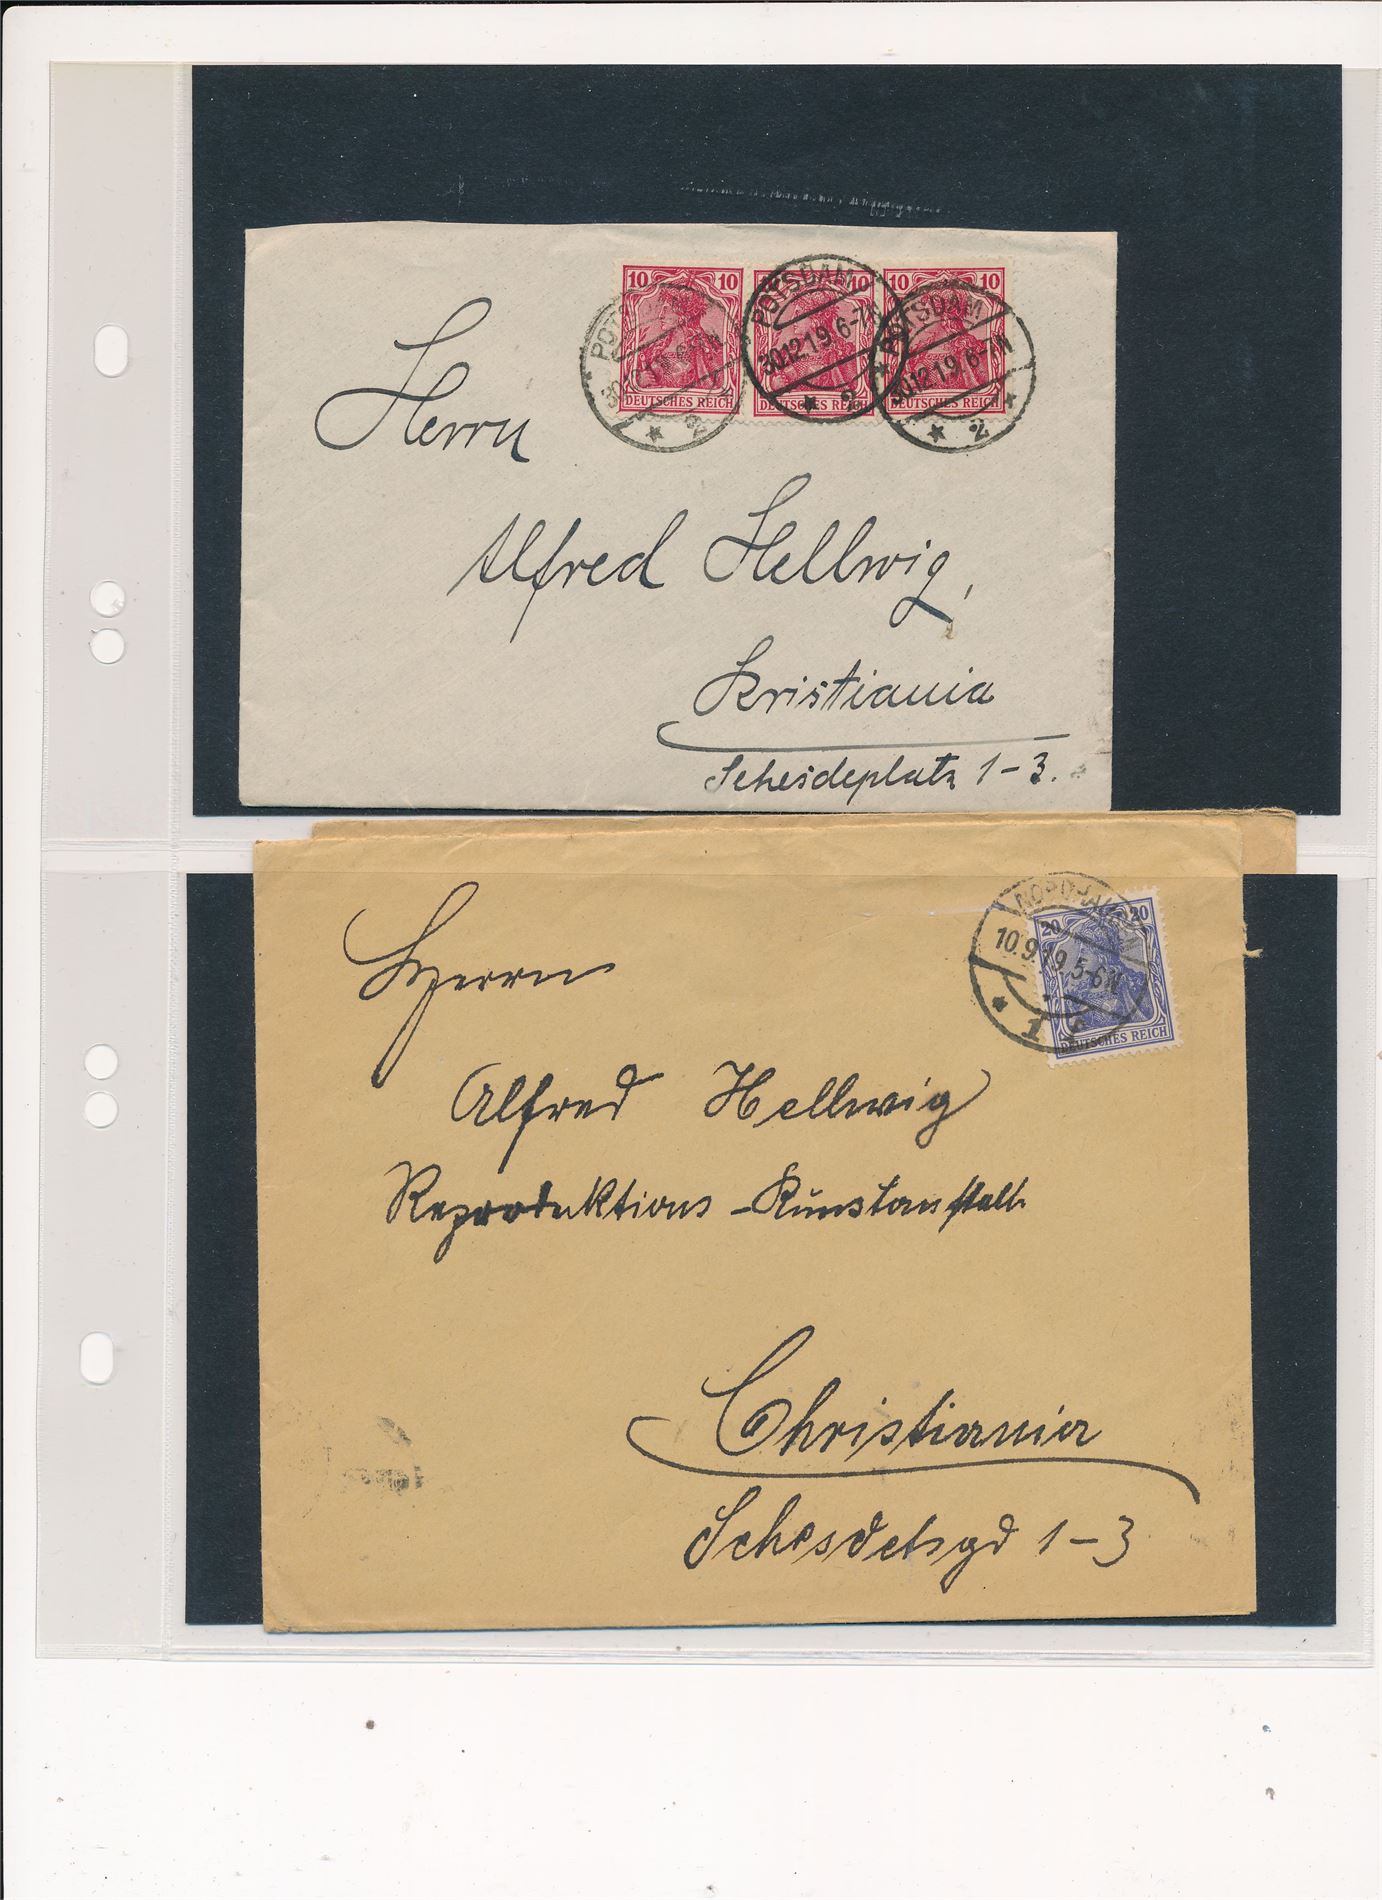 10 10 10 10 10
DEUTSCHES REICH DEUTSCHES REICH DEUTSCHES REICH
POTSDAM
30.12.19 6-7N
* 2 *
POTSDAM
30.12.19 6-7N
* 2 *
Herrn
Alfred Hellwig,
Kristiania
Scheideplatz 1-3.
NORDHAUSEN
10.9.19 5-6N
* 1 c
20 20
DEUTSCHES REICH
Herrn
Alfred Hellwig
Reproduktions-Kunstanstalt
Christiania
1-3